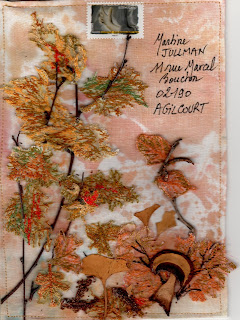 Martine
JULLMAN
11 rue Marcel
Bouchon
02-190
AGILCOURT